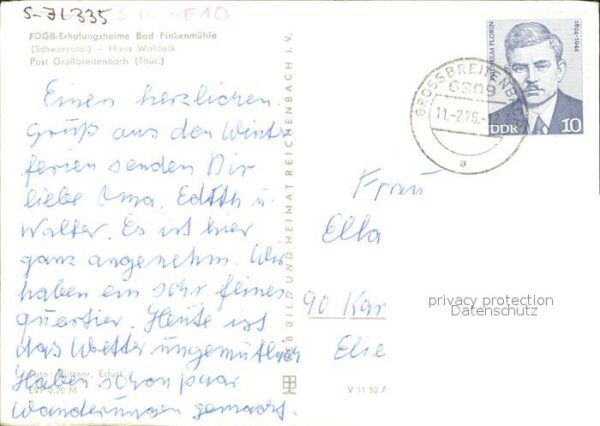 S-JL335
E10
FDGB-Erholungsheime Bad Finkenmühle
(Schwarzatal) — Haus Waldeck
Post Großbreitenbach (Thür.)
Einen herzlichen
Gruß aus den Winter
ferien senden Dir
liebe Oma, Edith u.
Walter. Es ist hier
ganz angenehm. Wir
haben ein sehr feines
Quartier. Heute ist
das Wetter ungemütlich
Haben schon paar
Wanderungen gemacht.
Foto: Büttner, Erfurt
EVP 0,20 M
VEB BILD UND HEIMAT REICHENBACH i. V.
V 11 50 A
GROSSBREITENB
6309
11.-2.76.-12
a
WILHELM FLORIN
1894-1944
DDR 10
Frau
Ella
90 Kar
Elie
privacy protection
Datenschutz